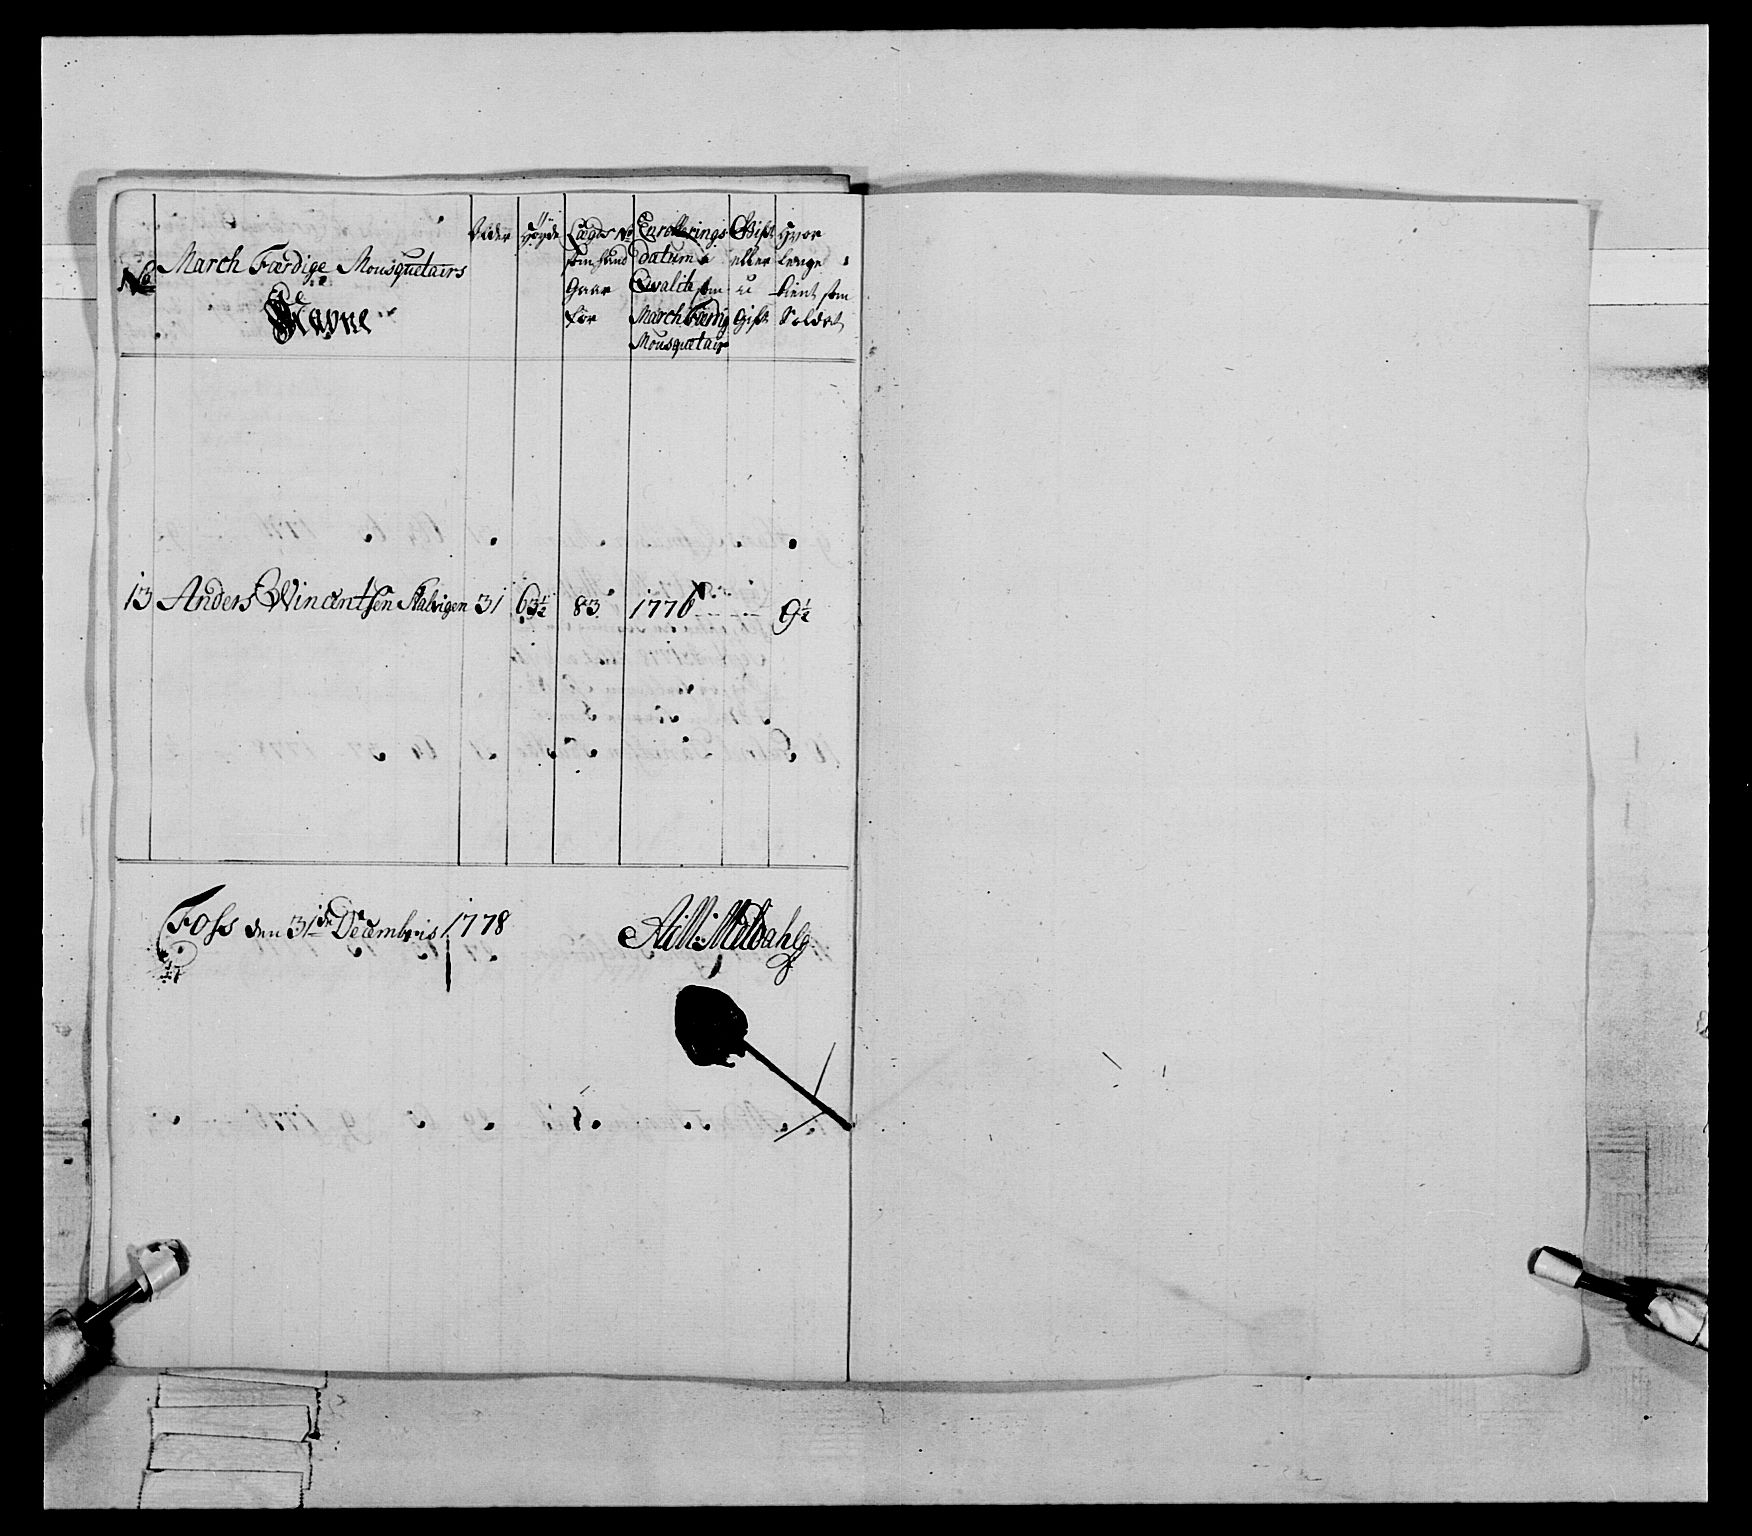 No
March Færdige Mousquetairs
Nafne
Alder
Høyde
Lægds No
som hand
Gaar
for
Enrollerings
Datum
Qvalite som
March Færdig
Mousquetair
Gift
eller
u
Gift
Hvor
lenge
tient som
Soldat
13 Anders Wincentsen 31 63½ 83 1776 9½
Foss den 31de Decembris 1778